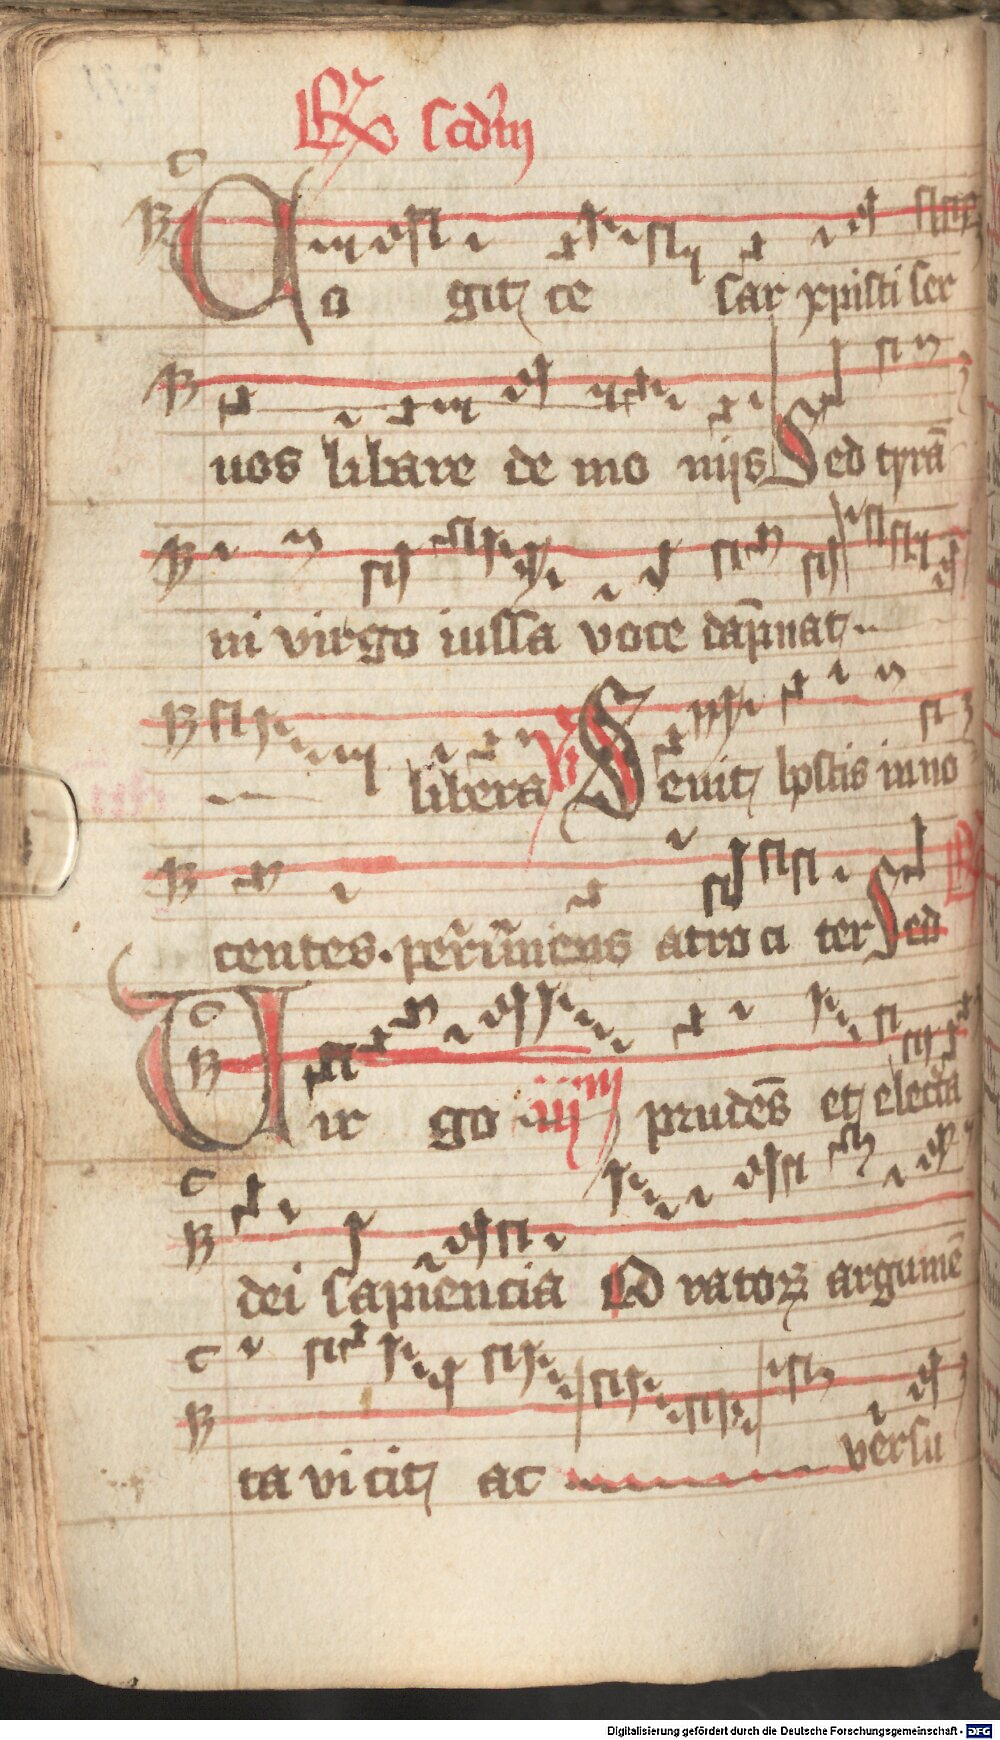 Rx scdm
Co git ce sar xpisti ser
uos libare de mo niis Sed tyrā
ni virgo iussa voce dāpnat
libera Vs Seuit hostis inno
centes. atro ci ter Sed
Vir go iiii prudēs et electa
dei sapiencia Orator argumē
ta vi cit ac versu
Digitalisierung gefördert durch die Deutsche Forschungsgemeinschaft - DFG